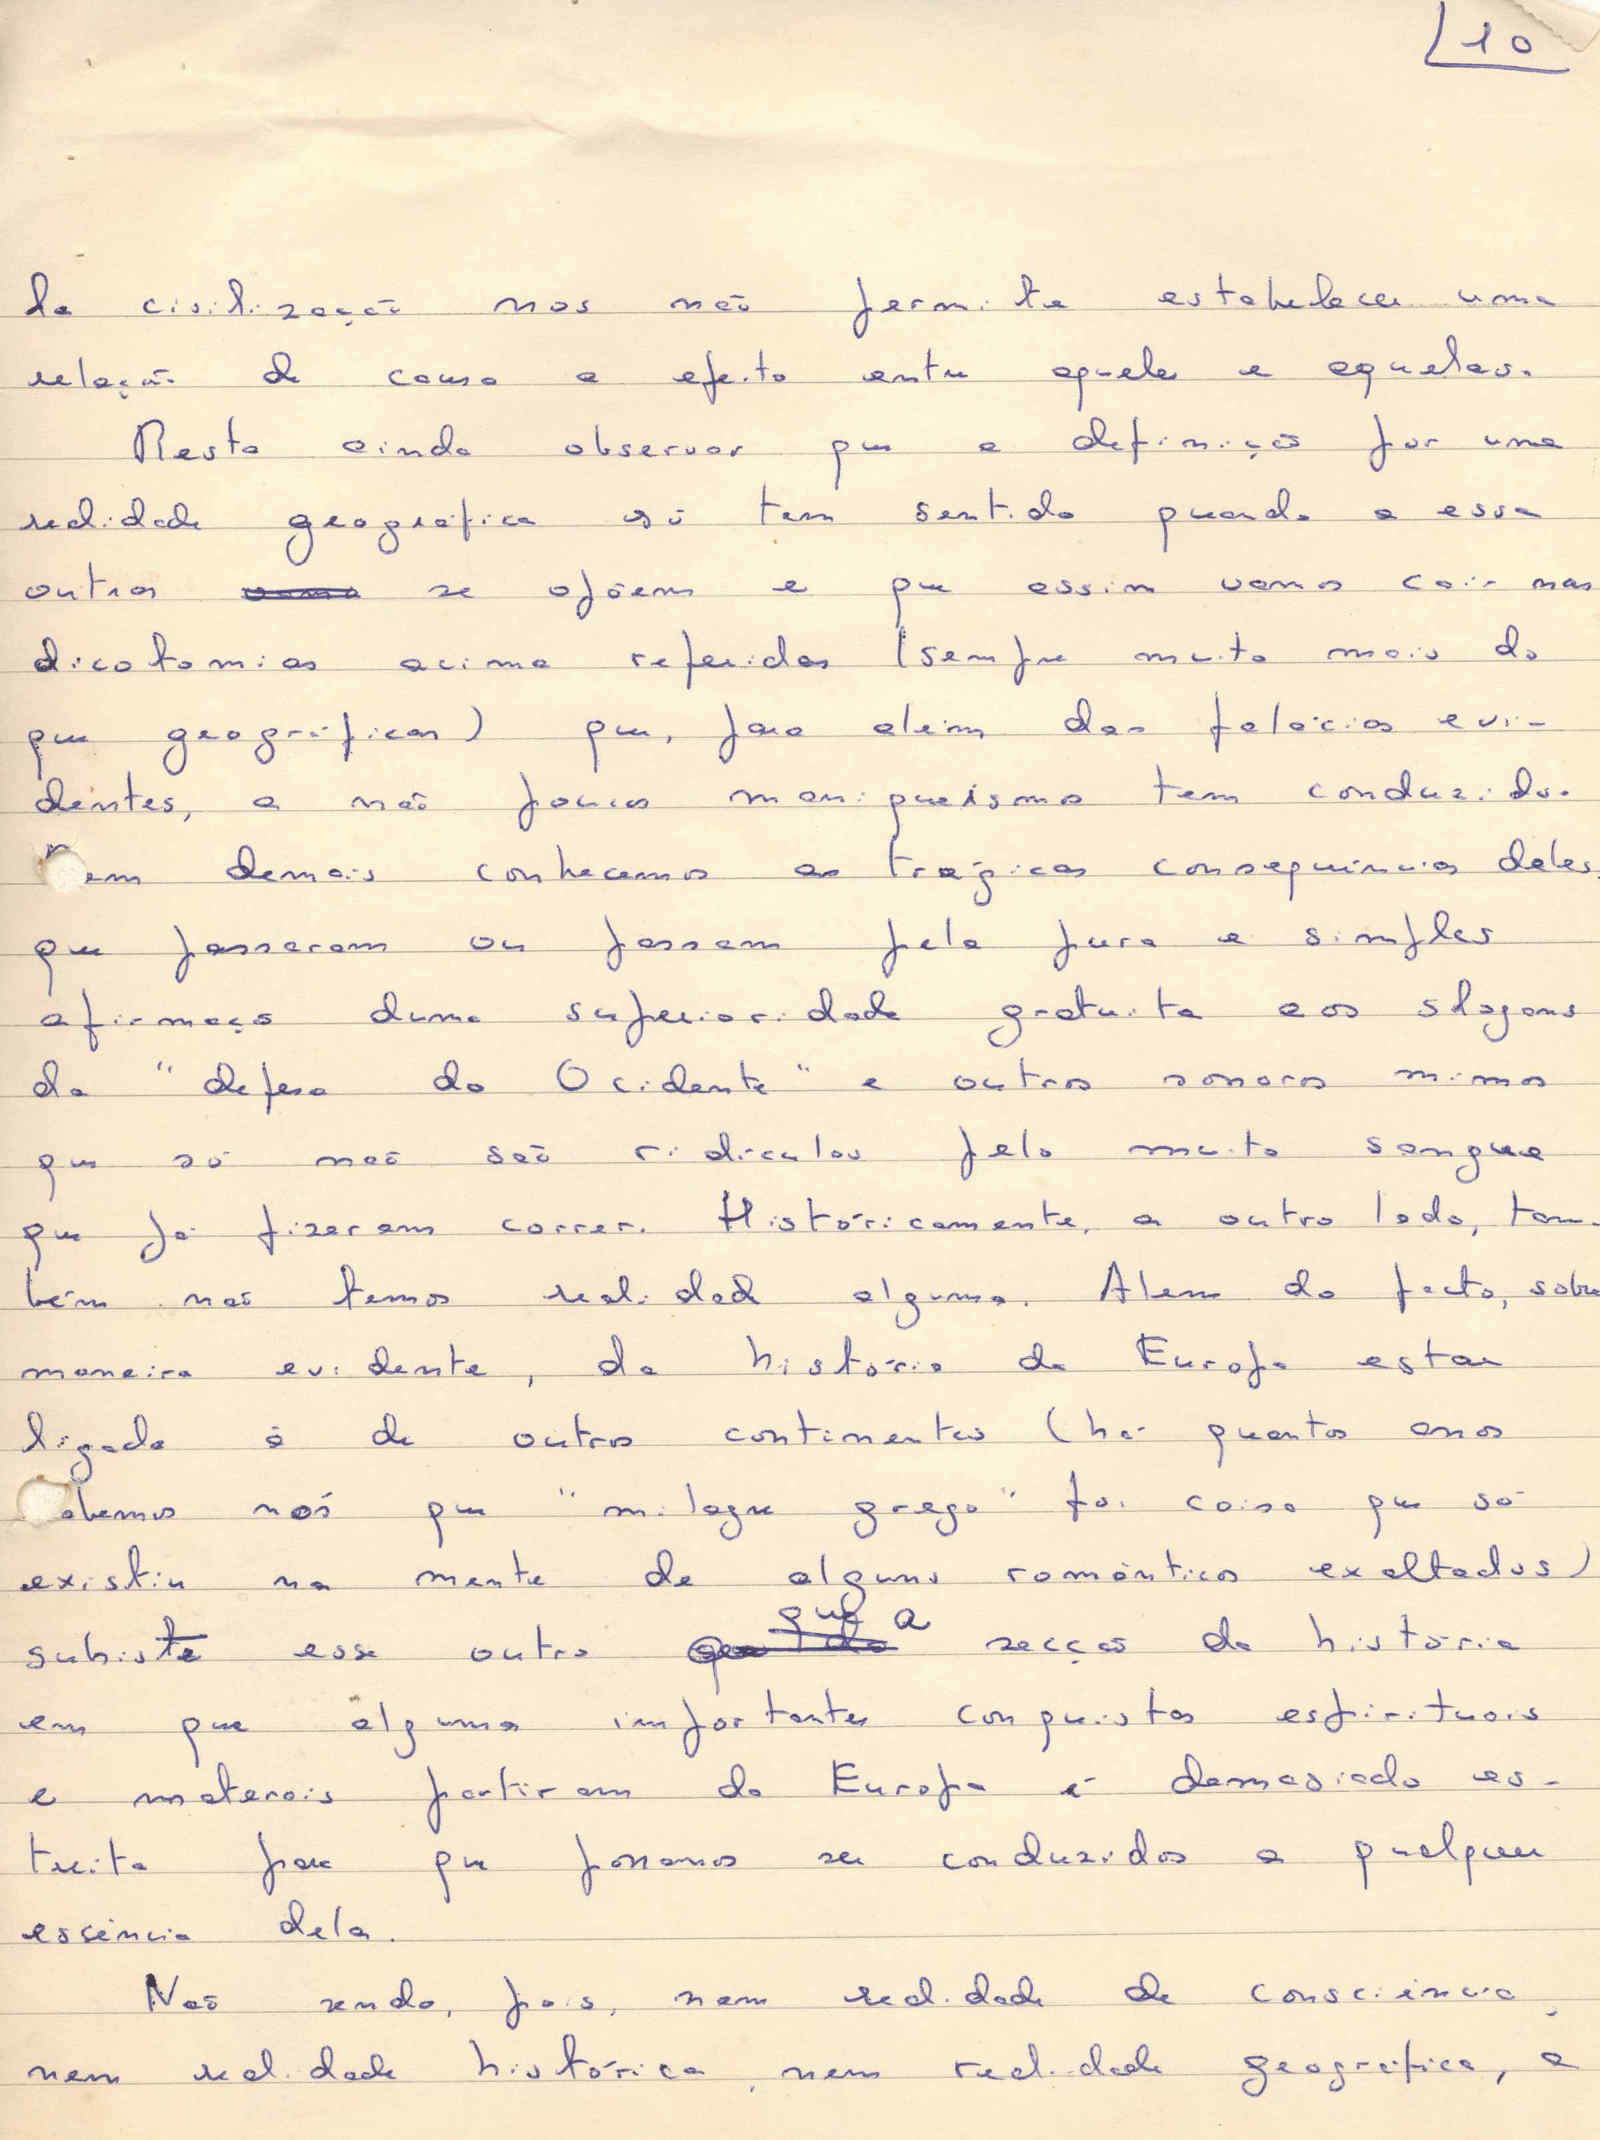 10
da civilização nos não permite estabelecer uma
relação de causa a efeito entre aqueles e aquelas.
Resta ainda observar que a definição por uma
realidade geográfica só tem sentido quando a essa
outras se opõem e que assim vamos cair nas
dicotomias acima referidas (sempre muito mais do
que geográficas) que, para além das falácias evi-
dentes, a não poucos maniqueísmo tem conduzido.
em demais conhecemos as trágicas consequências deles,
que passaram ou passam pela pura e simples
afirmação duma superioridade gratuita aos slogans
da "defesa do Ocidente" e outros sonoros mimos
que só não são ridículos pelo muito sangue
que já fizeram correr. Històricamente, a outro lado, tam-
bém não temos realidade alguma. Alem do facto, sobre
maneira evidente, da história da Europa estar
ligada à de outros continentes (há quantos anos
abemos nós que "milagre grego" foi coisa que só
existiu na mente de alguns românticos exaltados)
subiste esse outro que a secção da história
em que algumas importantes conquistas espirituais
e materais partiram da Europa é demasiado es-
treita para que possamos ser conduzidos a qualquer
essência dela.
Não sendo, pois, nem realidade de consciência,
nem realidade histórica, nem realidade geográfica, a